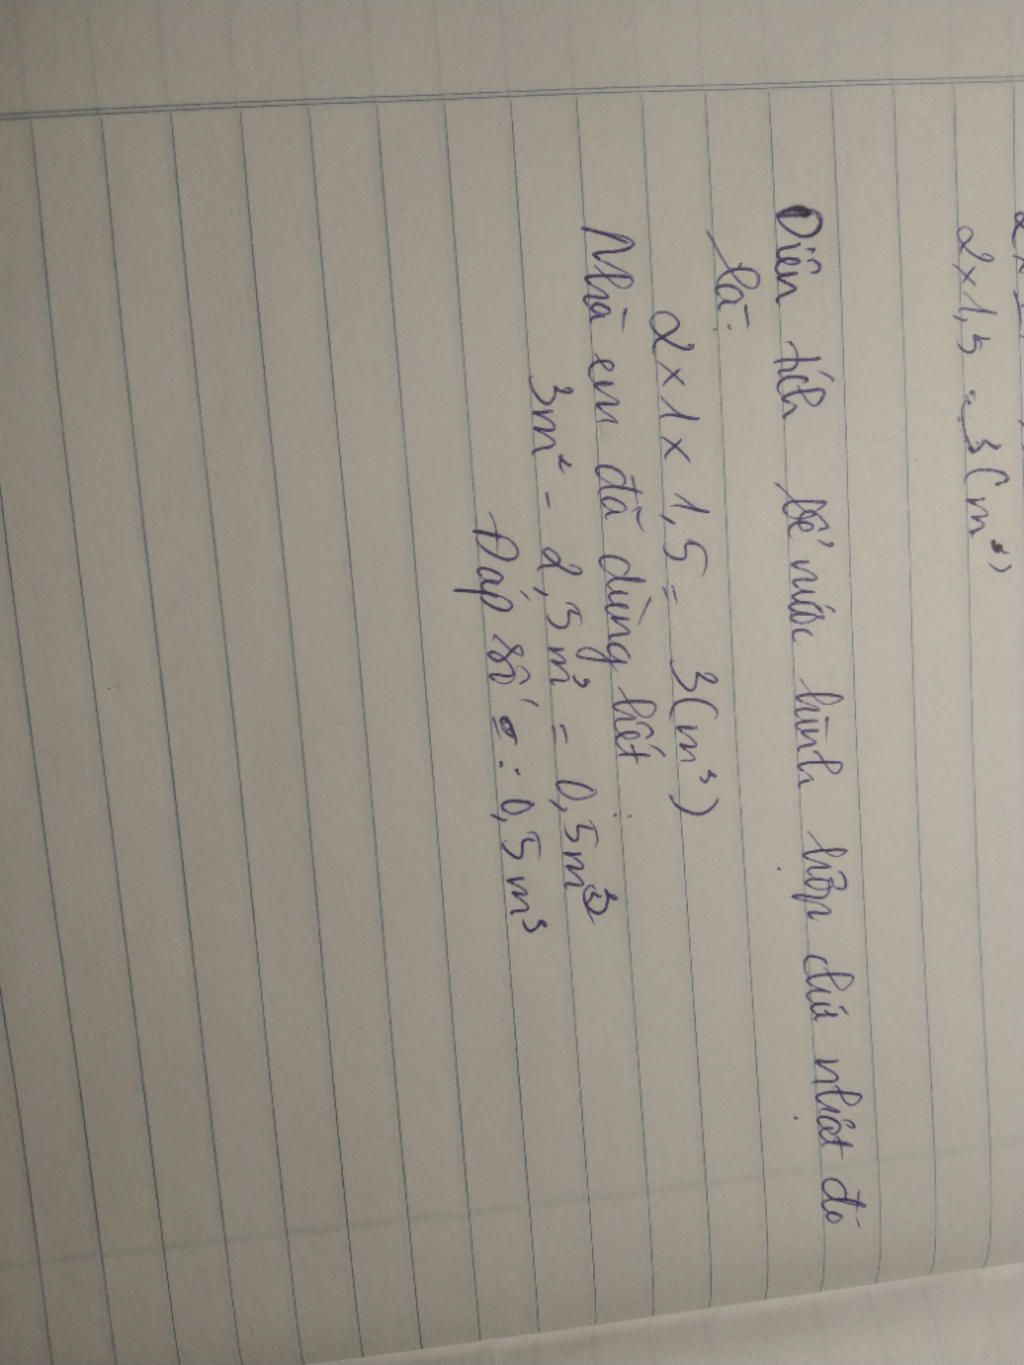 2 x 1,5 = 3(m³)
Diện tích bể nước hình hộp chữ nhật đó
là:
2 x 1 x 1,5 = 3(m³)
Nhà em đã dùng hết
3m² - 2,5m³ = 0,5m³
Đáp số : 0,5m³